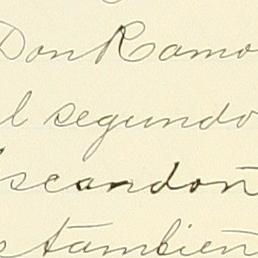 Don Ramo
l segundo
scandon
tambien